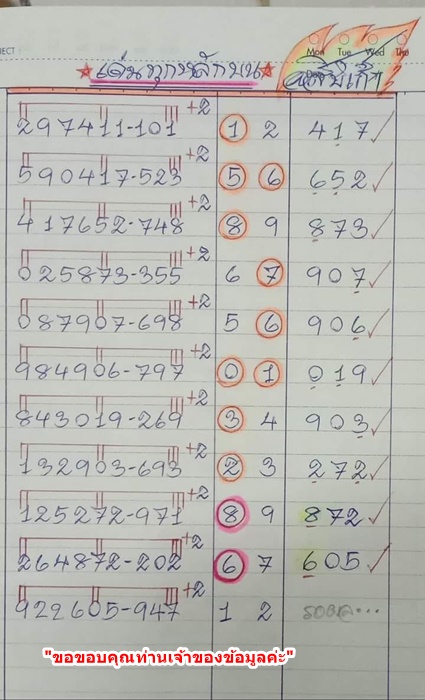 JECT
Mon Tue Wed Thu
★เด่นทุกหลักบน★
297411-101 +2 1 2 417 ✓
590417-523 +2 5 6 652 ✓
417652-748 +2 8 9 873 ✓
025873-355 +2 6 7 907 ✓
087907-698 +2 5 6 906 ✓
984906-797 +2 0 1 019 ✓
843019-269 +2 3 4 903 ✓
132903-693 +2 2 3 272 ✓
125272-971 +2 8 9 872 ✓
264872-202 +2 6 7 605 ✓
922605-947 +2 1 2 รอผล...
"ขอขอบคุณท่านเจ้าของข้อมูลค่ะ"